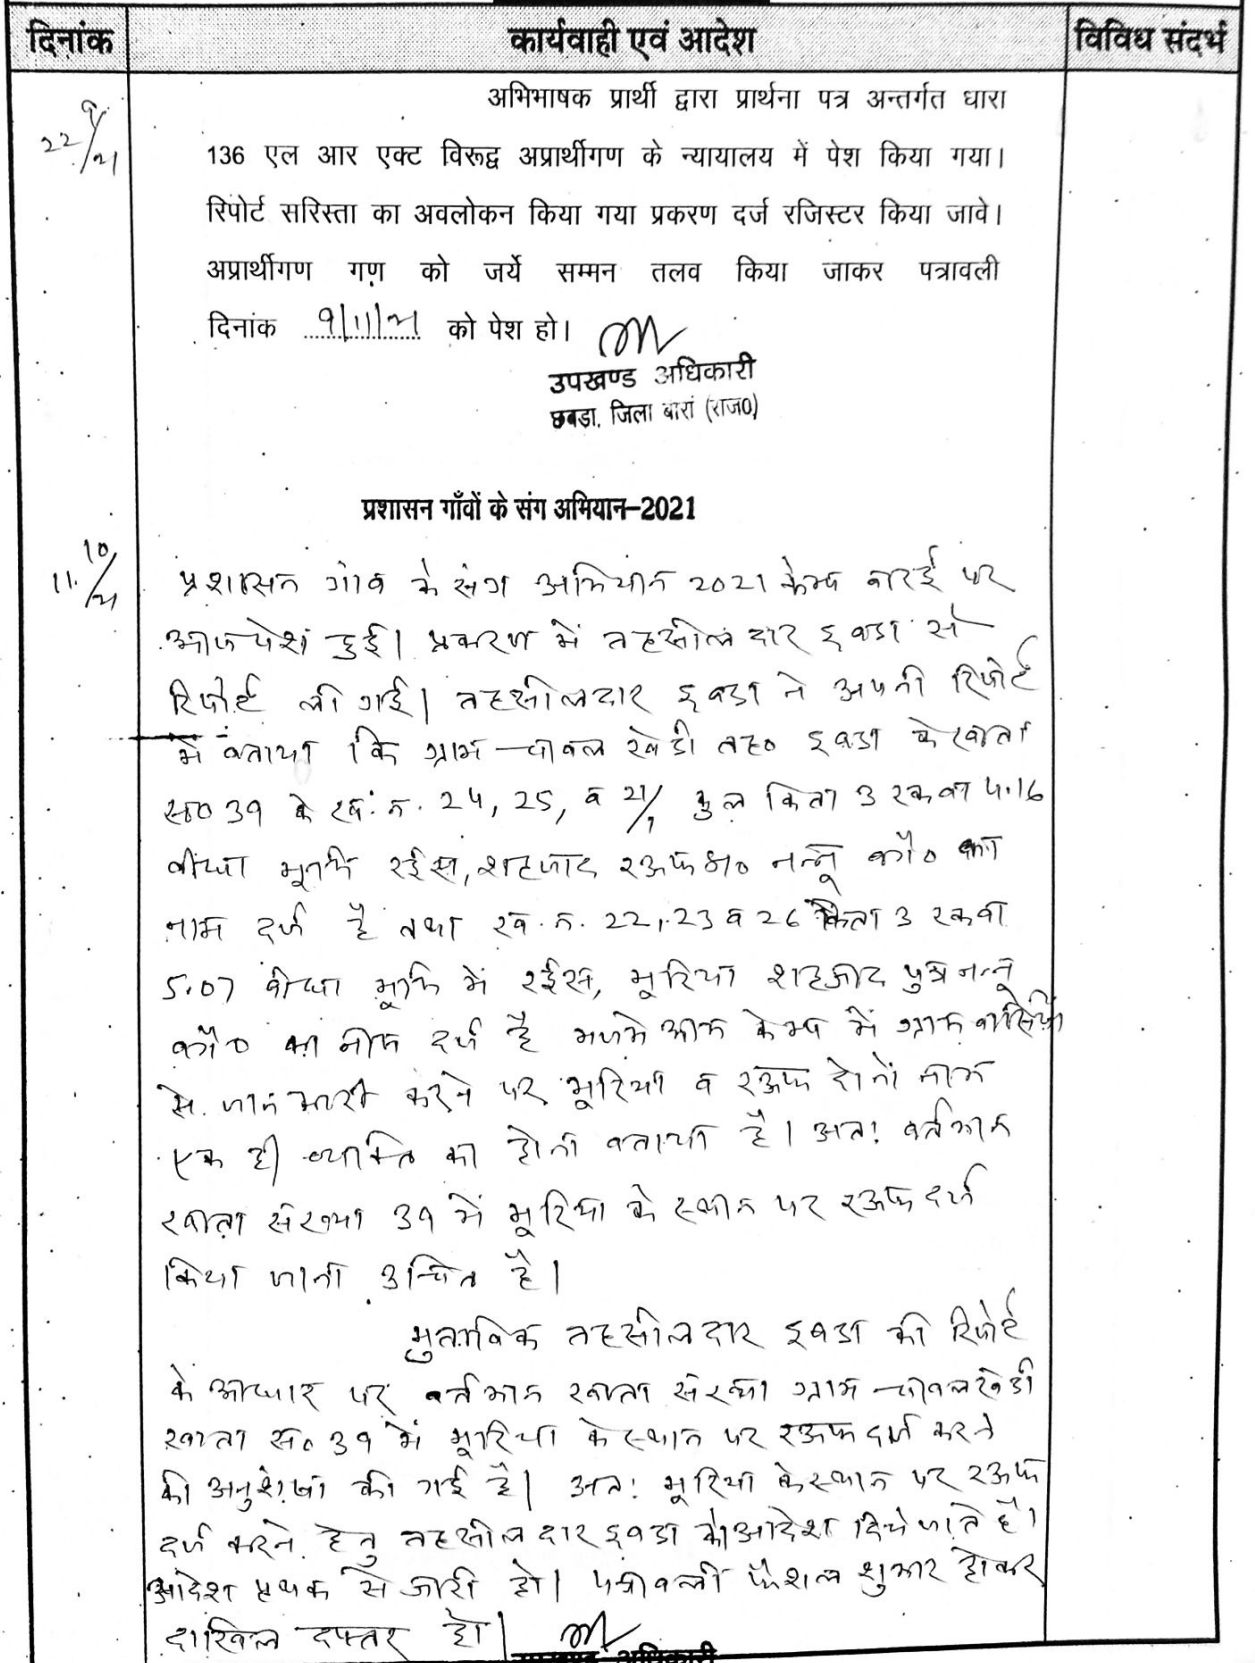 दिनांक कार्यवाही एवं आदेश विविध संदर्भ
22/9/21
अभिभाषक प्रार्थी द्वारा प्रार्थना पत्र अन्तर्गत धारा
136 एल आर एक्ट विरूद्व अप्रार्थीगण के न्यायालय में पेश किया गया।
रिपोर्ट सरिस्ता का अवलोकन किया गया प्रकरण दर्ज रजिस्टर किया जावे।
अप्रार्थीगण गण को जर्ये सम्मन तलव किया जाकर पत्रावली
दिनांक 9/11/21 को पेश हो।
उपखण्ड अधिकारी
छबडा, जिला बारां (राज0)
प्रशासन गाँवों के संग अभियान-2021
11.10/21
प्रशासन गांव के संग अभियान 2021 केम्प बारई पर
आज पेश हुई। प्रकरण में तहसीलदार छबडा से
रिपोर्ट ली गई। तहसीलदार छबडा ने अपनी रिपोर्ट
में बताया कि ग्राम चावलखेडी तह० छबडा के खाता
स०39 के ख.न. 24, 25, व 21/1 कुल किता 3 रकबा 4.16
बीघा भूमि रईस, शहजाद रऊफ नन्नू कौ० का
नाम दर्ज है तथा ख.न. 22,23 व 26 किता 3 रकबा
5.07 बीघा भूमि में रईस, भूरिया शहजाद पुत्र नन्नू
कौ० का नाम दर्ज है मजमे आम केम्प में ग्राम वासियों
से जानकारी करने पर भूरिया व रऊफ दोनों नाम
एक ही व्यक्ति का होना बताया है। अतः वर्तमान
खाता संख्या 39 में भूरिया के स्थान पर रऊफ दर्ज
किया जाना उचित है।
मुताबिक तहसीलदार छबडा की रिपोर्ट
के आधार पर वर्तमान खाता संख्या ग्राम चावलखेडी
खाता स० 39 में भूरिया के स्थान पर रऊफ दर्ज करने
की अनुशंषा की गई है। अतः भूरिया के स्थान पर रऊफ
दर्ज करने हेतु तहसीलदार छबडा को आदेश दिये जाते है।
आदेश प्रथक से जारी हो। पत्रावली फैशल शुमार होकर
दाखिल दफ्तर हो।
उपखण्ड अधिकारी